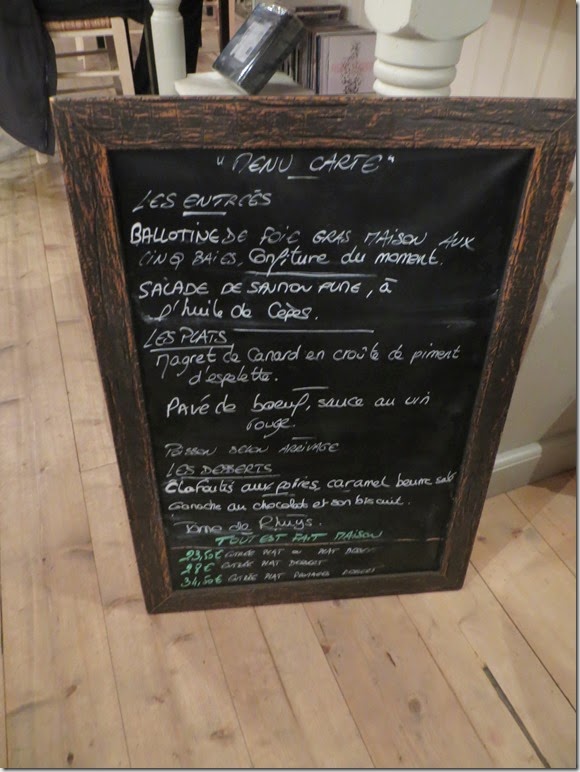 "MENU CARTE"
LES ENTRÉES
BALLOTINE DE FOIE GRAS MAISON AUX
CINQ BAIES, Confiture du moment.
SALADE DE SAUMON FUME, à
l'huile de Cèpes.
LES PLATS
Magret de Canard en croûte de piment
d'espelette.
PAVÉ de boeuf, sauce au vin
rouge.
POISSON SELON ARRIVAGE
LES DESSERTS
Clafoutis aux poires, caramel beurre salé
Ganache au chocolat et son biscuit.
Tome de Rhuys.
TOUT EST FAIT MAISON
23,50€ ENTRÉE PLAT OU PLAT DESSERT
28€ ENTRÉE PLAT DESSERT
34,50€ ENTRÉE PLAT FROMAGE DESSERT